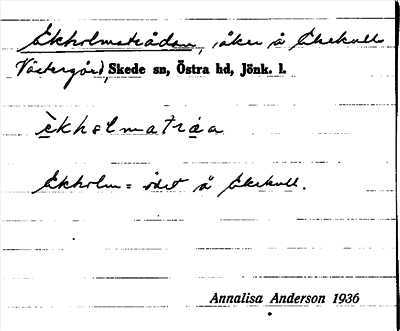 Ekholmatrådan, åker å Ekekull
Västergård, Skede sn, Östra hd, Jönk. l.
èkholmatráa
Ekholm= ödet å Ekekull.
Annalisa Anderson 1936